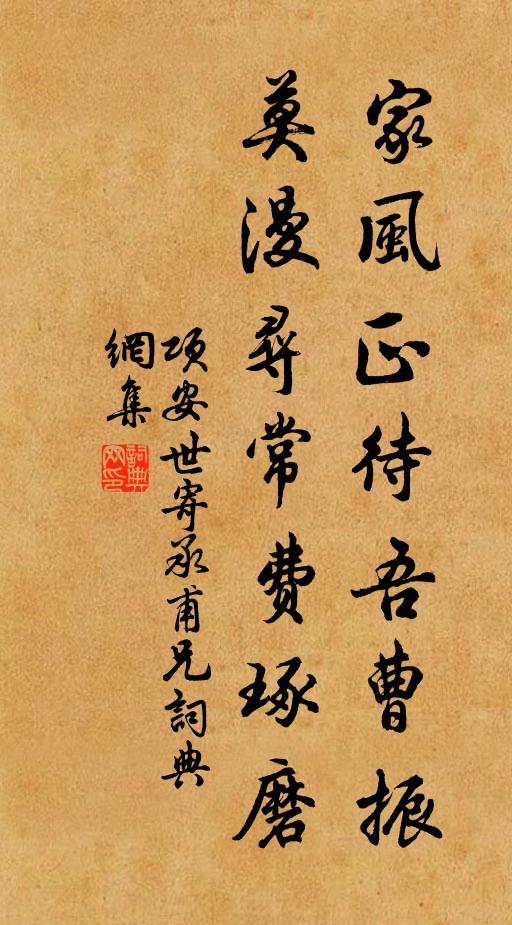 家風正待吾曹振
莫漫尋常費琢磨
項安世寄承甫兄詞典
網集
詞典
网印